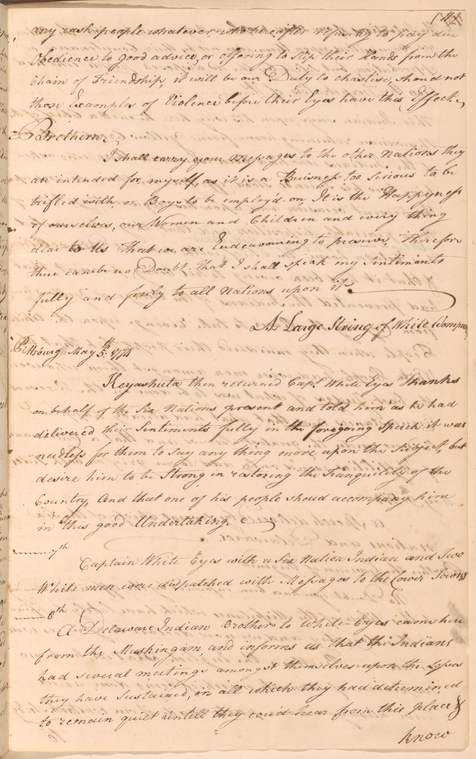 (141
any rash people whatever who hereafter refusing to pay due
Obedience to good advice, or offering to slip their Hands from the
Chain of Friendship, it will be our Duty to chastise, should not
those Examples of Violence before their Eyes have this Effect.
Brethern,
I shall carry your Messages to the other Nations they
are intended for myself, as it is a Buisness too Serious to be
trifled with or Boys to be employ'd on, It is the Happyness
of ourselves, our Women and Children and every thing
dear to Us that we are Endeavouring to preserve, Therefore
there can be no Doubt that I shall speak my Sentiments
fully and freely to all Nations upon it.
A Large String of White Wampum
Pittsburg May 5th 1774
Keyashuta then returned Capt White Eyes Thanks
on behalf of the Six Nations present and told him as he had
delivered their Sentiments fully in the foregoing Speech it was
needless for them to say any thing more upon the Subject, but
desire him to be Strong in restoring the Tranquility of the
Country, And that one of his people shoud accompany him
in this good Undertaking.
7th
Captain White Eyes with a Six Nation Indian and Two
White men were dispatched with Messages to the lower Towns
8th
A Delaware Indian Brother to White-Eyes came here
from the Muskingam and informs us that the Indians
had several meetings amongst themselves upon the Losses
they have Sustained, in all which they had determined
to remain quiet untill they coud hear from this place &
know